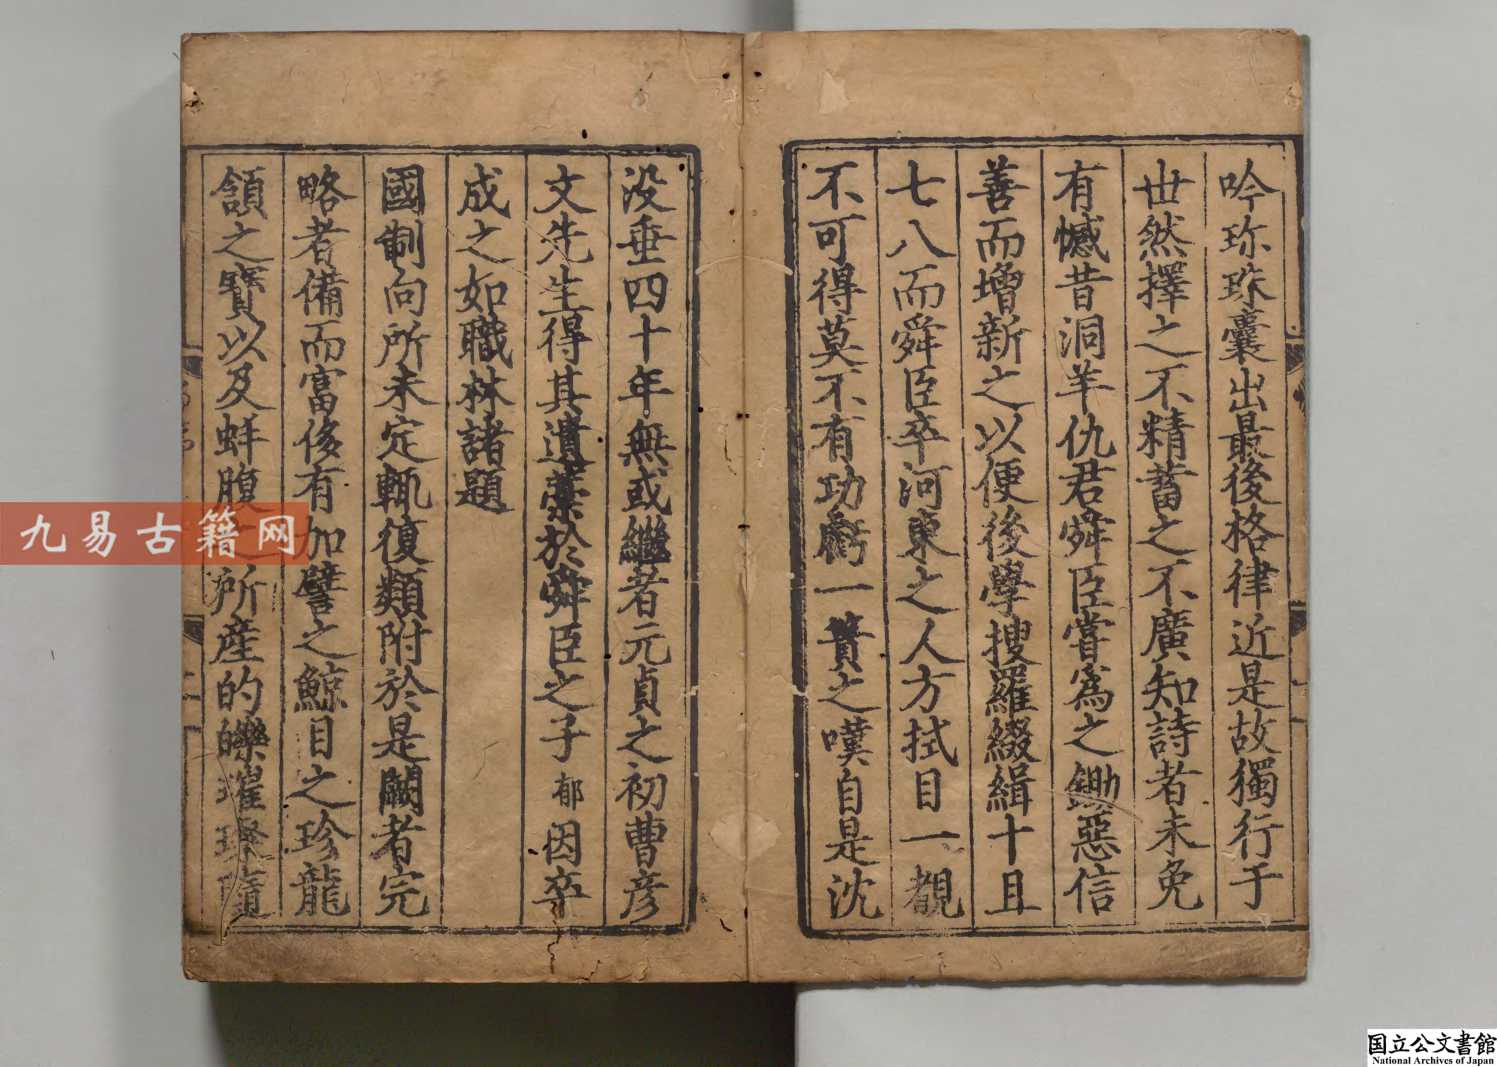 吟珎珠囊出最後格律近是故獨行于
丗然擇之不精蓄之不廣知詩者未免
有憾昔洞羊仇君舜臣嘗為之鋤惡信
善而增新之以便後學搜羅綴緝十且
七八而舜臣卒河東之人方拭目一覩
不可得莫不有功虧一簣之嘆自是沈
没垂四十年無或繼者元貞之初曹彦
文先生得其遺藁於舜臣之子郁因卒
成之如職林諸題
國制向所未定輒復類附於是闕者完
略者備而富侈有加譬之鯨目之珍龍
頷之寳以及蚌腹之所産的皪璀璨隨
九易古籍网
国立公文書館
National Archives of Japan